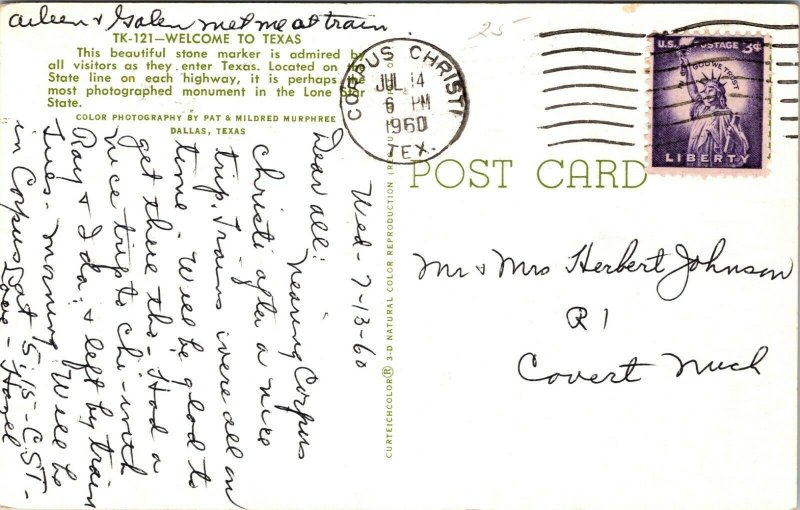 Aileen & Galen met me at train.
TK-121—WELCOME TO TEXAS
This beautiful stone marker is admired by
all visitors as they enter Texas. Located on the
State line on each highway, it is perhaps the
most photographed monument in the Lone Star
State.
COLOR PHOTOGRAPHY BY PAT & MILDRED MURPHREE
DALLAS, TEXAS
Wed- 7-13-60
Dear all: Nearing Corpus
Christi after a nice
trip. Trains were all on
time. Will be glad to
get there tho- Had a
nice trip to Chi- with
Ray & Ida; & left by train
Tues- morning Will be
in Corpus at 5:15-C.S.T-
Love- Hazel
CURTEICHCOLOR® 3-D NATURAL COLOR REPRODUCTION
25
CORPUS CHRISTI
JUL 14
6 PM
1960
TEX.
U.S. POSTAGE 3¢
IN GOD WE TRUST
LIBERTY
POST CARD
Mr & Mrs Herbert Johnson
R 1
Covert Mich